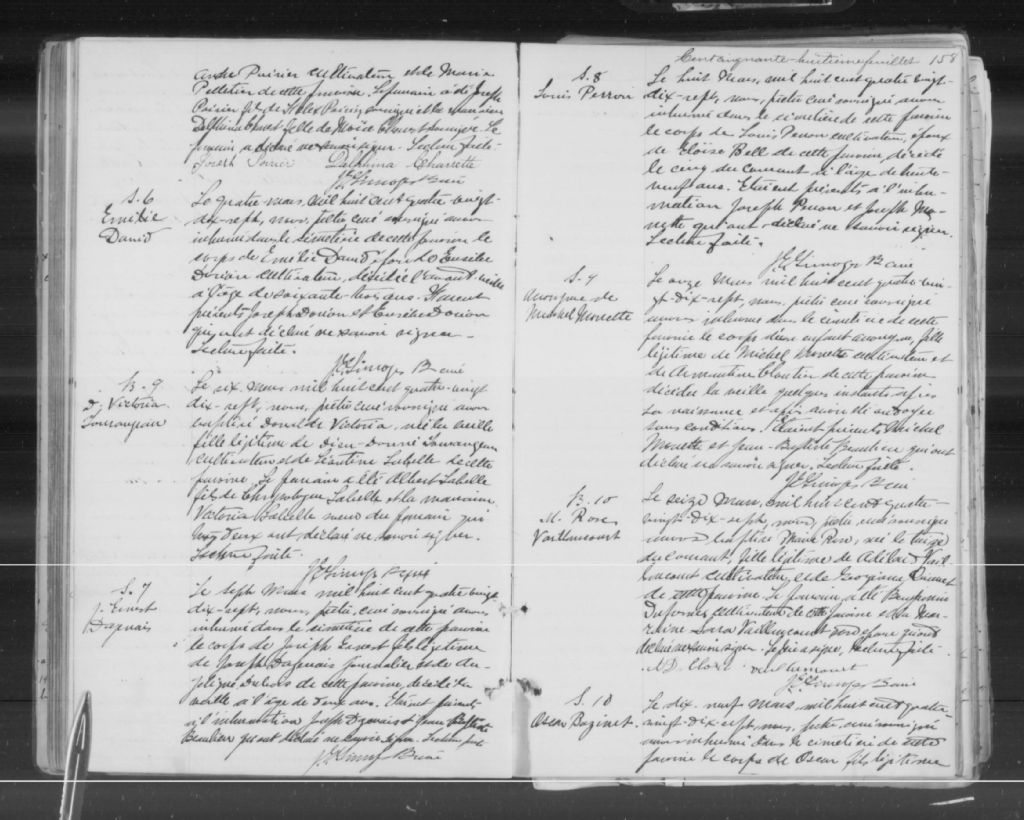 André Poirier cultivateur et de Marie
Pelletier de cette paroisse. Le parrain a été Joseph
Poirier fils de Poirier soussigné et la marraine
Delphina fille de soussignée. Le
parrain a déclaré ne savoir signer. Lecture faite.
Joseph Poirier Delphina Charette
Ptre Curé
S. 6
Emilie
David
Le quatre mars, mil huit cent quatre-vingt
dix-sept, nous, prêtre curé soussigné avons
inhumé dans le cimetière de cette paroisse le
corps de Emélie David épouse de Eusèbe
Dorion cultivateur, décédée l'avant-veille
à l'âge de soixante-trois ans. Etaient
présents Joseph Dorion et Eusèbe Dorion
qui ont déclaré ne savoir signer.
Lecture faite.
Limoges Ptre curé
B. 9
D. Victoria
Le six mars mil huit cent quatre-vingt
dix-sept, nous, prêtre curé soussigné avons
baptisé Victoria, née la veille
fille légitime de Dieu-Donné
cultivateur et de Léontine Labelle de cette
paroisse. Le parrain a été Albert Labelle
fils de Chrysologue Labelle et la marraine
Victoria Labelle soeur du parrain qui
tous deux ont déclaré ne savoir signer.
Lecture faite.
Limoges Ptre curé
S. 7
J. Ernest
Dagenais
Le sept mars mil huit cent quatre vingt
dix-sept, nous, prêtre curé soussigné avons
inhumé dans le cimetière de cette paroisse
le corps de Joseph Ernest fils légitime
de Joseph Dagenais journalier et de
Dubois de cette paroisse, décédé la
veille à l'âge de deux ans. Etaient présents
à l'inhumation Joseph Dagenais et Jean Baptiste
Beaulieu qui ont déclaré ne savoir signer. Lecture faite
Limoges Ptre curé
Cent cinquante-huitième feuillet 158
S. 8
Louis Perron
Le huit mars, mil huit cent quatre vingt-
dix-sept, nous, prêtre curé soussigné avons
inhumé dans le cimetière de cette paroisse
le corps de Louis Perron cultivateur, époux
de Eloïse Bell de cette paroisse, décédé
le cinq du courant à l'âge de trente-
neuf ans. Etaient présents à l'inhu-
mation Joseph Perron et Joseph Mo-
nette qui ont déclaré ne savoir signer.
Lecture faite.
Limoges Ptre curé
S. 9
Anonyme de
Michel Monette
Le onze mars mil huit cent quatre-vin-
gt-dix-sept, nous, prêtre curé soussigné
avons inhumé dans le cimetière de cette
paroisse le corps d'un enfant anonyme, fille
légitime de Michel Monette cultivateur et
de Armentine de cette paroisse
décédée la veille quelques instants après
sa naissance et après avoir été ondoyée
sous condition. Etaient présents Michel
Monette et Jean-Baptiste Beaulieu qui ont
déclaré ne savoir signer. Lecture faite.
Limoges Ptre curé
B. 10
M. Rose
Vaillancourt
Le seize mars, mil huit cent quatre-
vingt-dix-sept, nous, prêtre curé soussigné
avons baptisé Marie Rose, née le
du courant, fille légitime de Vail-
lancourt cultivateur et de Georgiana
de cette paroisse. Le parrain a été
cultivateur de cette paroisse et la mar-
raine Vaillancourt son épouse qui ont
déclaré ne savoir signer. Le père a signé, Lecture faite.
Vaillancourt
Limoges Ptre curé
S. 10
Oscar Bazinet
Le dix-neuf mars, mil huit cent quatre-
vingt-dix-sept, nous, prêtre, curé soussigné
avons inhumé dans le cimetière de cette
paroisse le corps de Oscar fils légitime